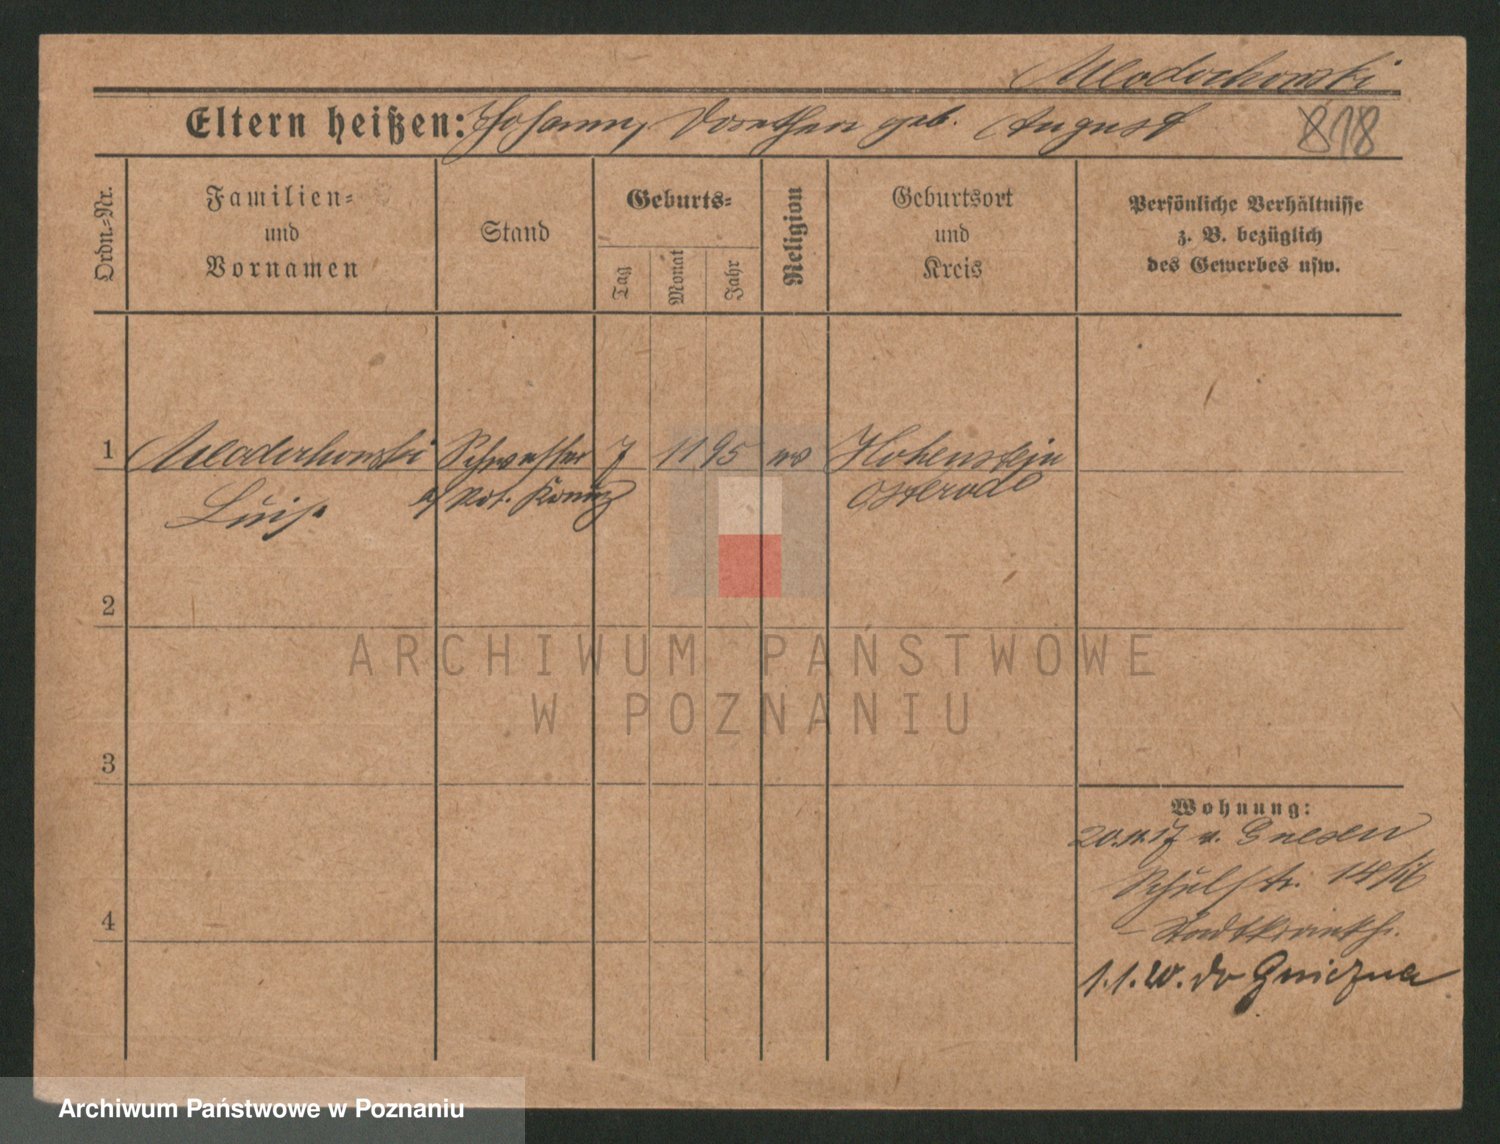 Mlodochowski
Eltern heißen: Johann, Dorothea geb. August
818
Ordn.-Nr.
Familien-
und
Vornamen
Stand
Geburts-
Tag
Monat
Jahr
Religion
Geburtsort
und
Kreis
Persönliche Verhältnisse
z. B. bezüglich
des Gewerbes usw.
1 Schwester 7 11 95 ev Hohenstein
Luise v. Rot. Kreuz Osterode
2
3
4
Wohnung:
20.11.17 v. Gnesen
Schulstr.
Stadtkrankh.
1.1.20. do Gniezna
ARCHIWUM PAŃSTWOWE
W POZNANIU
Archiwum Państwowe w Poznaniu